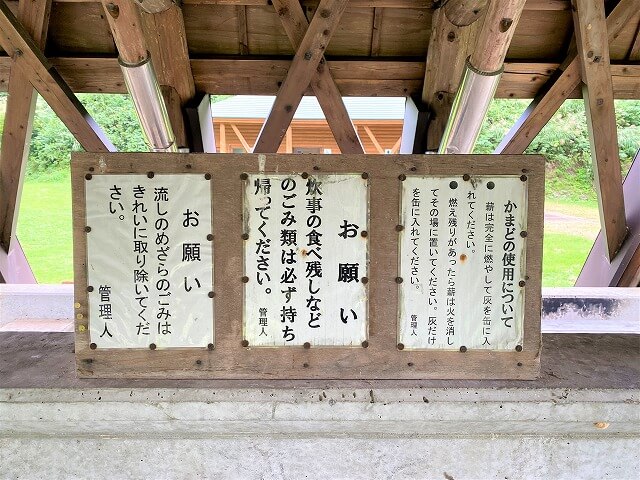 かまどの使用について
●薪は完全に燃やして灰を缶に入
れてください。
●燃え残りがあったら薪は火を消し
てその場に置いてください。灰だけ
を缶に入れてください。
管理人
お願い
炊事の食べ残しなど
のごみ類は必ず持ち
帰ってください。
管理人
お願い
流しのめざらのごみは
きれいに取り除いてくだ
さい。
管理人